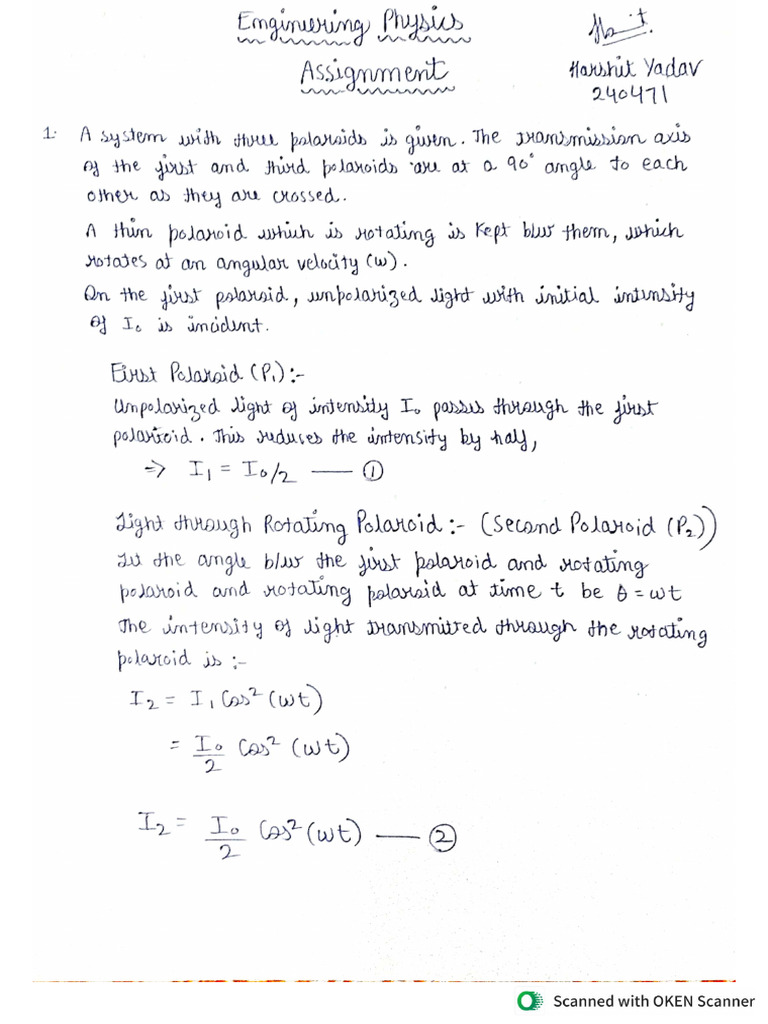 Engineering Physics
Assignment
Harshit Yadav
240471
1. A system with three polaroids is given. The transmission axis
of the first and third polaroids are at a 90° angle to each
other as they are crossed.
A thin polaroid which is rotating is kept b/w them, which
rotates at an angular velocity (w).
On the first polaroid, unpolarized light with initial intensity
of I₀ is incident.
First Polaroid (P₁):-
Unpolarized light of intensity I₀ passes through the first
polaroid. This reduces the intensity by half,
=> I₁ = I₀/2 —— ①
Light through Rotating Polaroid :- (Second Polaroid (P₂))
Let the angle b/w the first polaroid and rotating
polaroid and rotating polaroid at time t be θ = wt
The intensity of light transmitted through the rotating
polaroid is :-
I₂ = I₁ Cos² (wt)
= I₀/2 Cos² (wt)
I₂ = I₀/2 Cos² (wt) —— ②
Scanned with OKEN Scanner